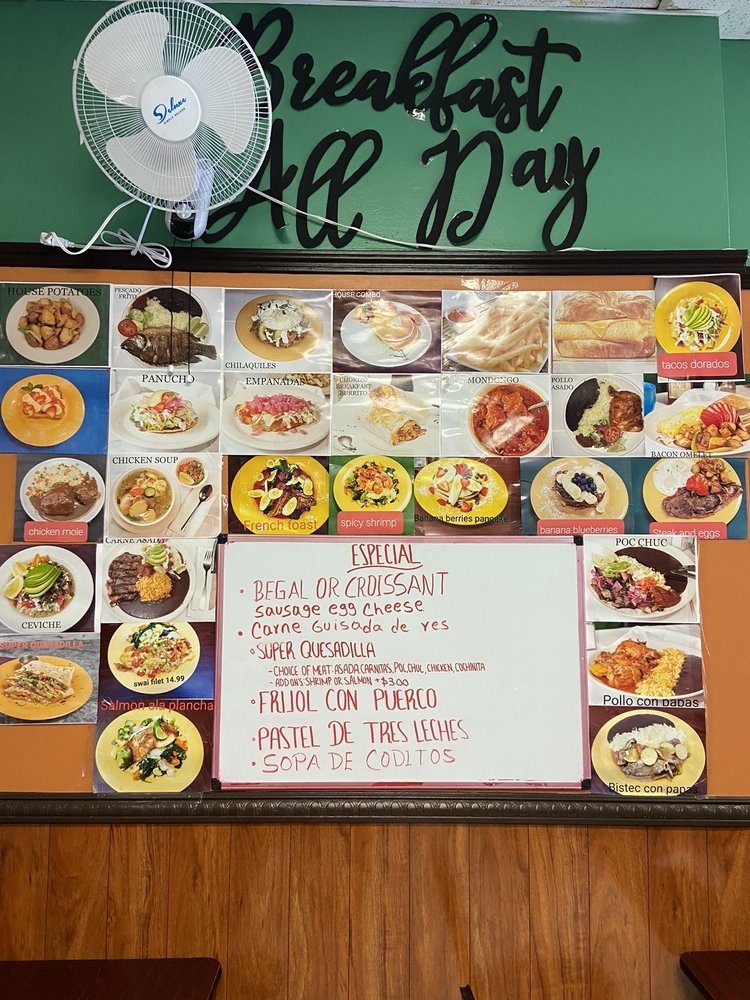 Breakfast
All Day
Deluxe
HOUSE POTATOES
PESCADO
FRITO
CHILAQUILES
HOUSE COMBO
tacos dorados
PANUCHO
EMPANADAS
CHORIZO
BREAKFAST
BURRITO
MONDONGO
POLLO
ASADO
BACON OMELET
chicken mole
CHICKEN SOUP
French toast
spicy shrimp
Banana berries pancake
banana blueberries
Steak and eggs
CEVICHE
CARNE ASADA
SUPER QUESADILLA
swai filet 14.99
Salmon ala plancha
ESPECIAL
• BEGAL OR CROISSANT
sausage egg cheese
• Carne Guisada de res
• SUPER QUESADILLA
- CHOICE OF MEAT: ASADA, CARNITAS, POC CHUC, CHICKEN, COCHINITA
- ADD ONS SHRIMP OR SALMON + $3.00
• FRIJOL CON PUERCO
• PASTEL DE TRES LECHES
• SOPA DE CODITOS
POC CHUC
Pollo con papas
Bistec con papas